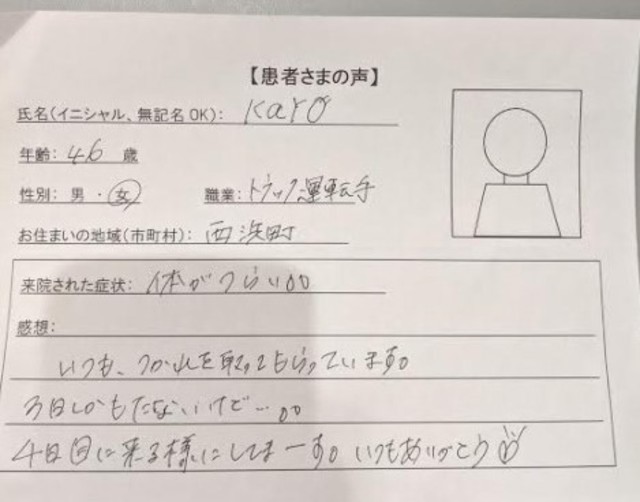 【患者さまの声】
氏名(イニシャル、無記名OK): Karo
年齢: 46 歳
性別: 男 ・ 女 職業: トラック運転手
お住まいの地域(市町村): 西浜町
来院された症状: 体がつらい。。
感想:
いつも、つかれを取ってもらっています。
3日しかもたないけど…。。
4日目に来る様にしてまーす。いつもありがとう